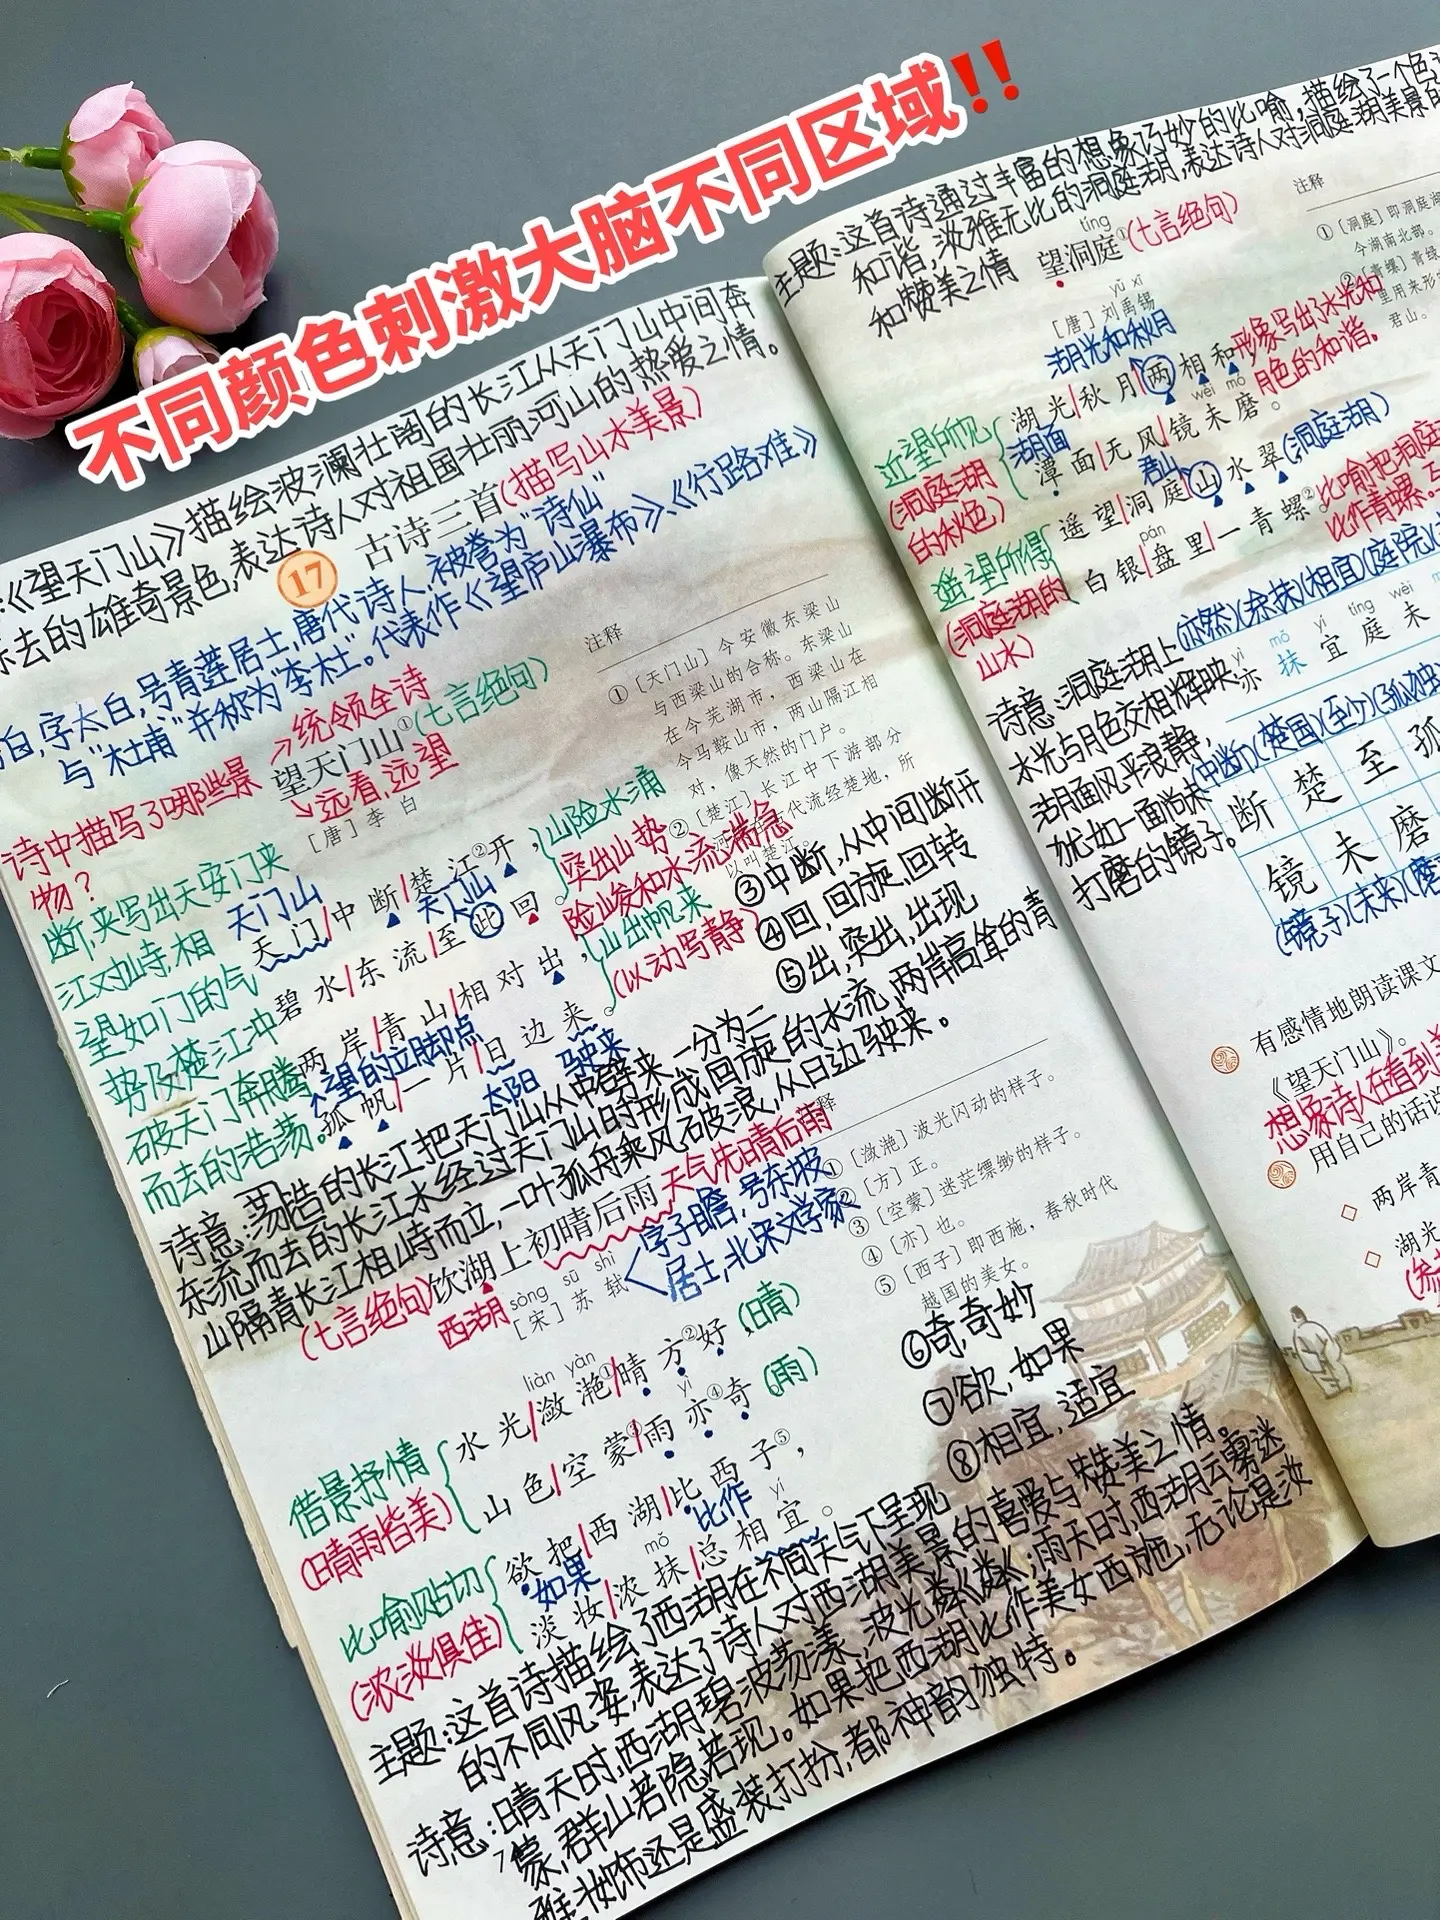 不同颜色刺激大脑不同区域!!
《望天门山》描绘波澜壮阔的长江从天门山中间奔
去的雄奇景色,表达诗人对祖国壮丽河山的热爱之情。
17 古诗三首(描写山水美景)
白,字太白,号青莲居士,唐代诗人,被誉为"诗仙"
与"杜甫"并称为"李杜"。代表作《望庐山瀑布》、《行路难》
统领全诗
望天门山①(七言绝句)
远看,远望
[唐]李白
诗中描写了哪些景
物?
注释
①[天门山]今安徽东梁山
与西梁山的合称。东梁山
在今芜湖市,西梁山在
今马鞍山市,两山隔江相
对,像天然的门户。
②[楚江]长江中下游部分
河 代流经楚地,所
以叫楚江。
天门山
天门/中断/楚江②开,
天门山
碧水/东流/至此/回。
两岸/青山/相对出,
望的立脚点
孤帆/一片/日边来。
太阳 驶来
断,夹写出天安门夹
江对峙,相
望如门的气
势及楚江冲
破天门奔腾
而去的浩荡。
山险水涌
突出山势
险峻和水流湍急
山出帆来
(以动写静)
③中断,从中间断开
④回,回旋,回转
⑤出,突出,出现
诗意:浩的长江把天门山从中劈来一分为二
东流而去的长江水经过天门山时形成回旋的水流,两岸高耸的青
山隔着长江相峙而立,一叶孤舟乘风破浪,从日边驶来。
(七言绝句)饮湖上初晴后雨 天气先晴后雨
西湖
sòng sū shì
[宋]苏轼
字子瞻,号东坡
居士,北宋文学家
①[潋滟]波光闪动的样子。
②[方]正。
③[空蒙]迷茫缥缈的样子。
④[亦]也。
⑤[西子]即西施,春秋时代
越国的美女。
liàn yàn
水光/潋滟①/晴方②好,(晴)
yì
山色/空蒙③/雨亦④奇(雨)
欲把/西湖/比西子⑤,
如果 比作
mǒ yí
淡妆/浓抹/总相宜。
借景抒情
(晴雨皆美)
比喻贴切
(浓淡俱佳)
⑥奇,奇妙
⑦欲,如果
⑧相宜,适宜
主题:这首诗描绘了西湖在不同天气下呈现
的不同风姿,表达了诗人对西湖美景的喜爱与赞美之情。
诗意:晴天时,西湖碧波荡漾,波光粼粼;雨天时,西湖云雾迷
蒙,群山若隐若现。如果把西湖比作美女西施,无论是淡
雅妆饰还是盛装打扮,都神韵独特。
主题:这首诗通过丰富的想象巧妙的比喻,描绘了一个色
和谐,淡雅无比的洞庭湖,表达诗人对洞庭湖美景的
和赞美之情
tíng
望洞庭①(七言绝句)
yǔ xī
[唐]刘禹锡
注释
①[洞庭]即洞庭湖
今湖南北部。
②[青螺]青绿
里用来形
君山。
湖光和秋月
湖光/秋月/两相和
形象写出了水光和
月色的和谐。
湖面
wèi mó
潭面/无风/镜未磨。
君山
遥望/洞庭/山水翠,(洞庭湖)
pán
白银/盘里/一青螺②。
比喻把洞庭
比作青螺。
近望所见
(洞庭湖
的秋色)
遥望所得
(洞庭湖的
山水)
诗意:洞庭湖上
水光与月色交相辉映,
湖面风平浪静,
犹如一面尚未
打磨的镜子。
(亦然)(涂抹)(相宜)(庭院)
yì mǒ yí tíng wèi
亦 抹 宜 庭 未
(中断)(楚国)(至少)(孤独)
断 楚 至 孤
镜 未 磨
(镜子)(未来)
有感情地朗读课文
《望天门山》。
想象诗人在看到
用自己的话说
两岸青
湖光